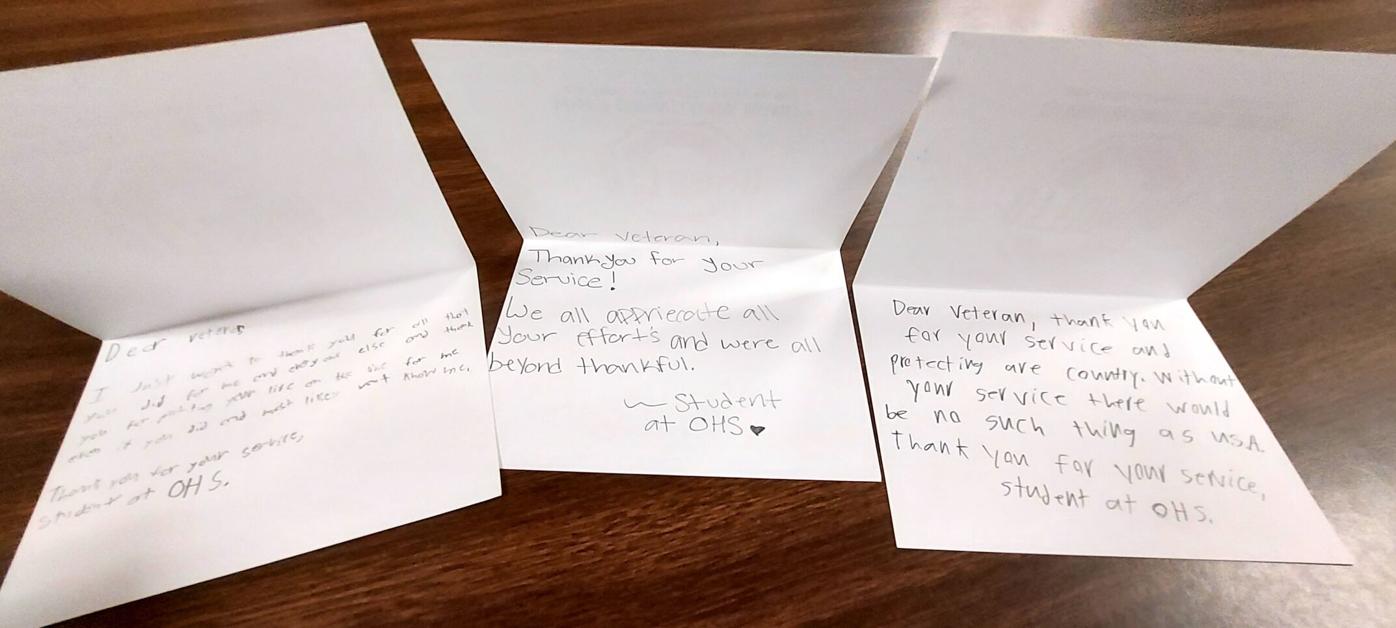 Dear veteran
I Just want to thank you for all that
you did for me and everyone else and thank
you for putting your life on the line for me
even if you did and most likely wont know me.
Thank you for your service,
Student at OHS.
Dear Veteran,
Thankyou for your
Service!
We all appriecate all
Your efforts and were all
beyond thankful.
~ Student
at OHS♥
Dear Veteran, thank you
for your service and
protecting are country. Without
your service there would
be no such thing as USA.
Thank you for your service,
student at OHS.